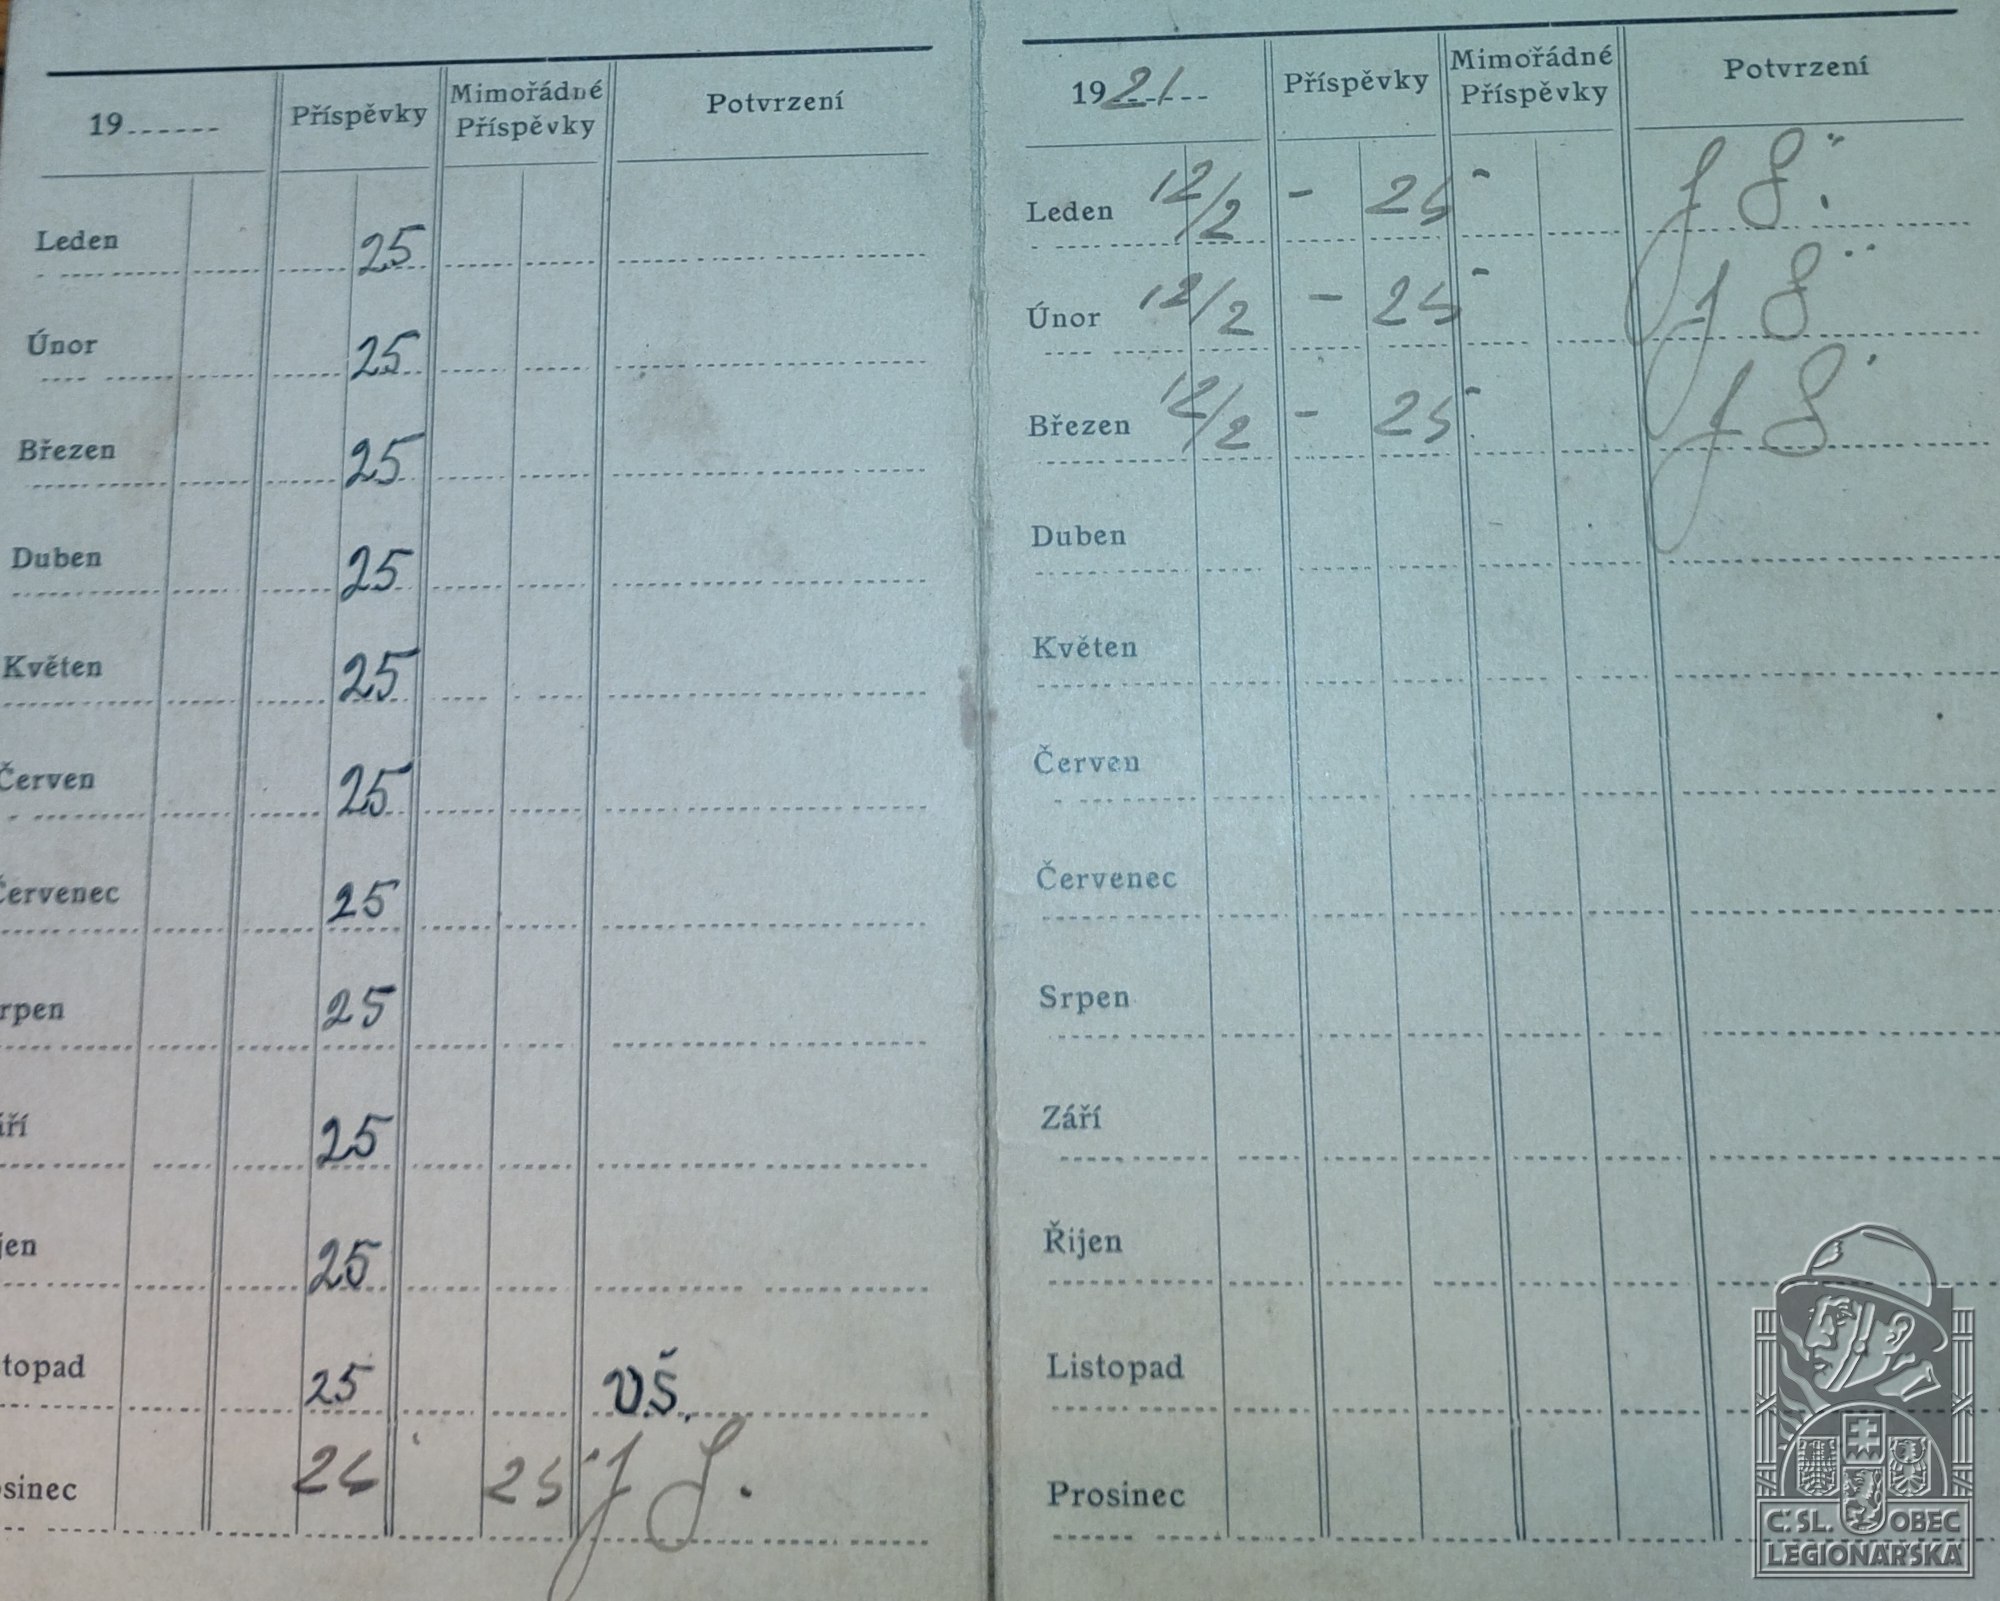 19...... Příspěvky Mimořádné Příspěvky Potvrzení
Leden 25
Únor 25
Březen 25
Duben 25
Květen 25
Červen 25
Červenec 25
rpen 25
áří 25
jen 25
topad 25 V.Š.
sinec 25 25 J S.
1921 Příspěvky Mimořádné Příspěvky Potvrzení
Leden 12/2 - 25 - J S.
Únor 12/2 - 25 - J S
Březen 12/2 - 25 - J S
Duben
Květen
Červen
Červenec
Srpen
Září
Řijen
Listopad
Prosinec
Č. SL. OBEC
LEGIONÁŘSKÁ